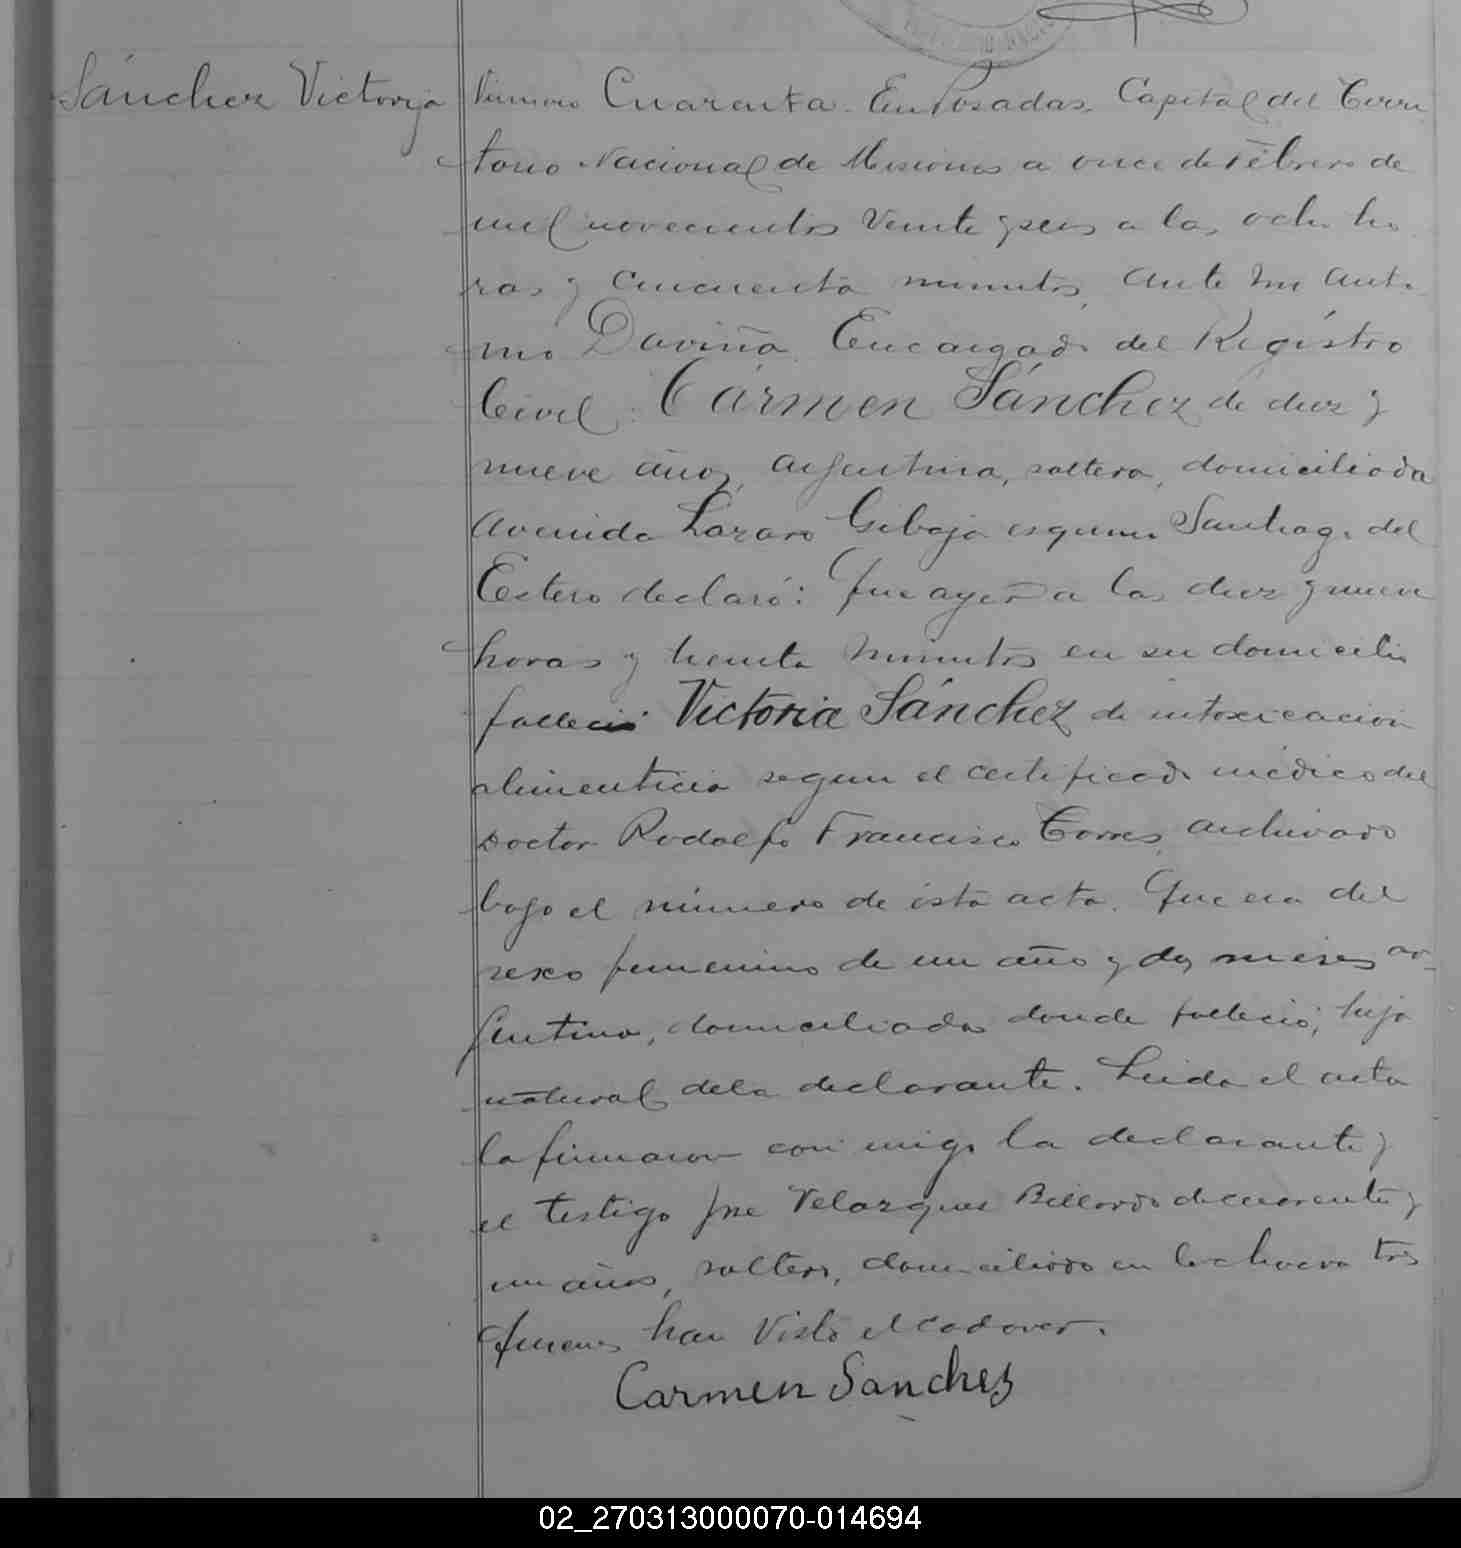 Sánchez Victoria
Número Cuarenta. En Posadas, Capital del Terri
torio Nacional de Misiones a once de Febrero de
mil novecientos veinte y seis a las ocho ho
ras y cincuenta minutos, ante mi Anto
nio Daviña, Encargado del Registro
Civil: Cármen Sánchez de diez y
nueve años, argentina, soltera, domiciliada
Avenida Lázaro Gibaja esquina Santiago del
Estero declaró: Que ayer a las diez y nueve
horas y treinta minutos en su domicilio
falleció Victoria Sánchez de intoxicación
alimenticia segun el certificado médico del
Doctor Rodolfo Francisco Torres, archivado
bajo el número de ésta acta. Que era del
sexo femenino de un año y dos meses ar-
gentina, domiciliada donde falleció; hija
natural de la declarante. Leida el acta
la firmaron con migo la declarante y
el testigo José Velazquez Billordo de cuarenta y
un años, soltero, domiciliado en la chacra tres
quienes han visto el cadaver.
Carmen Sanchez
02_270313000070-014694